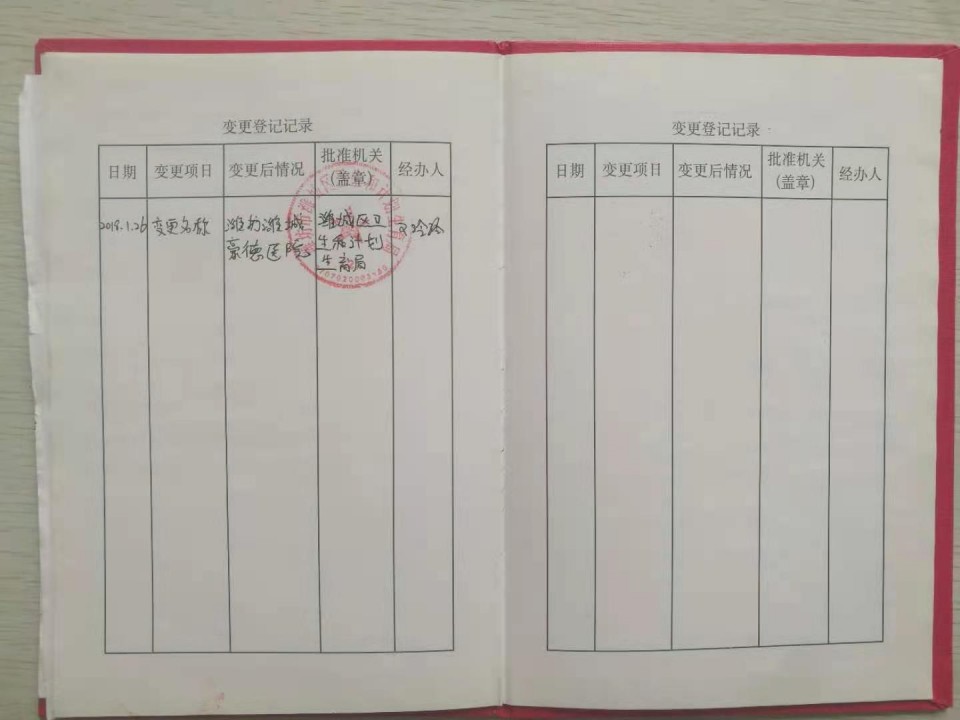 变更登记记录
日期 变更项日 变更后情况 批准机关 经办人
(盖章)
2018.1.26 变更名称 潍坊潍城 潍城区卫
豪德医院 生和计划
生育局
变更登记记录
日期 变更项目 变更后情况 批准机关 经办人
(盖章)